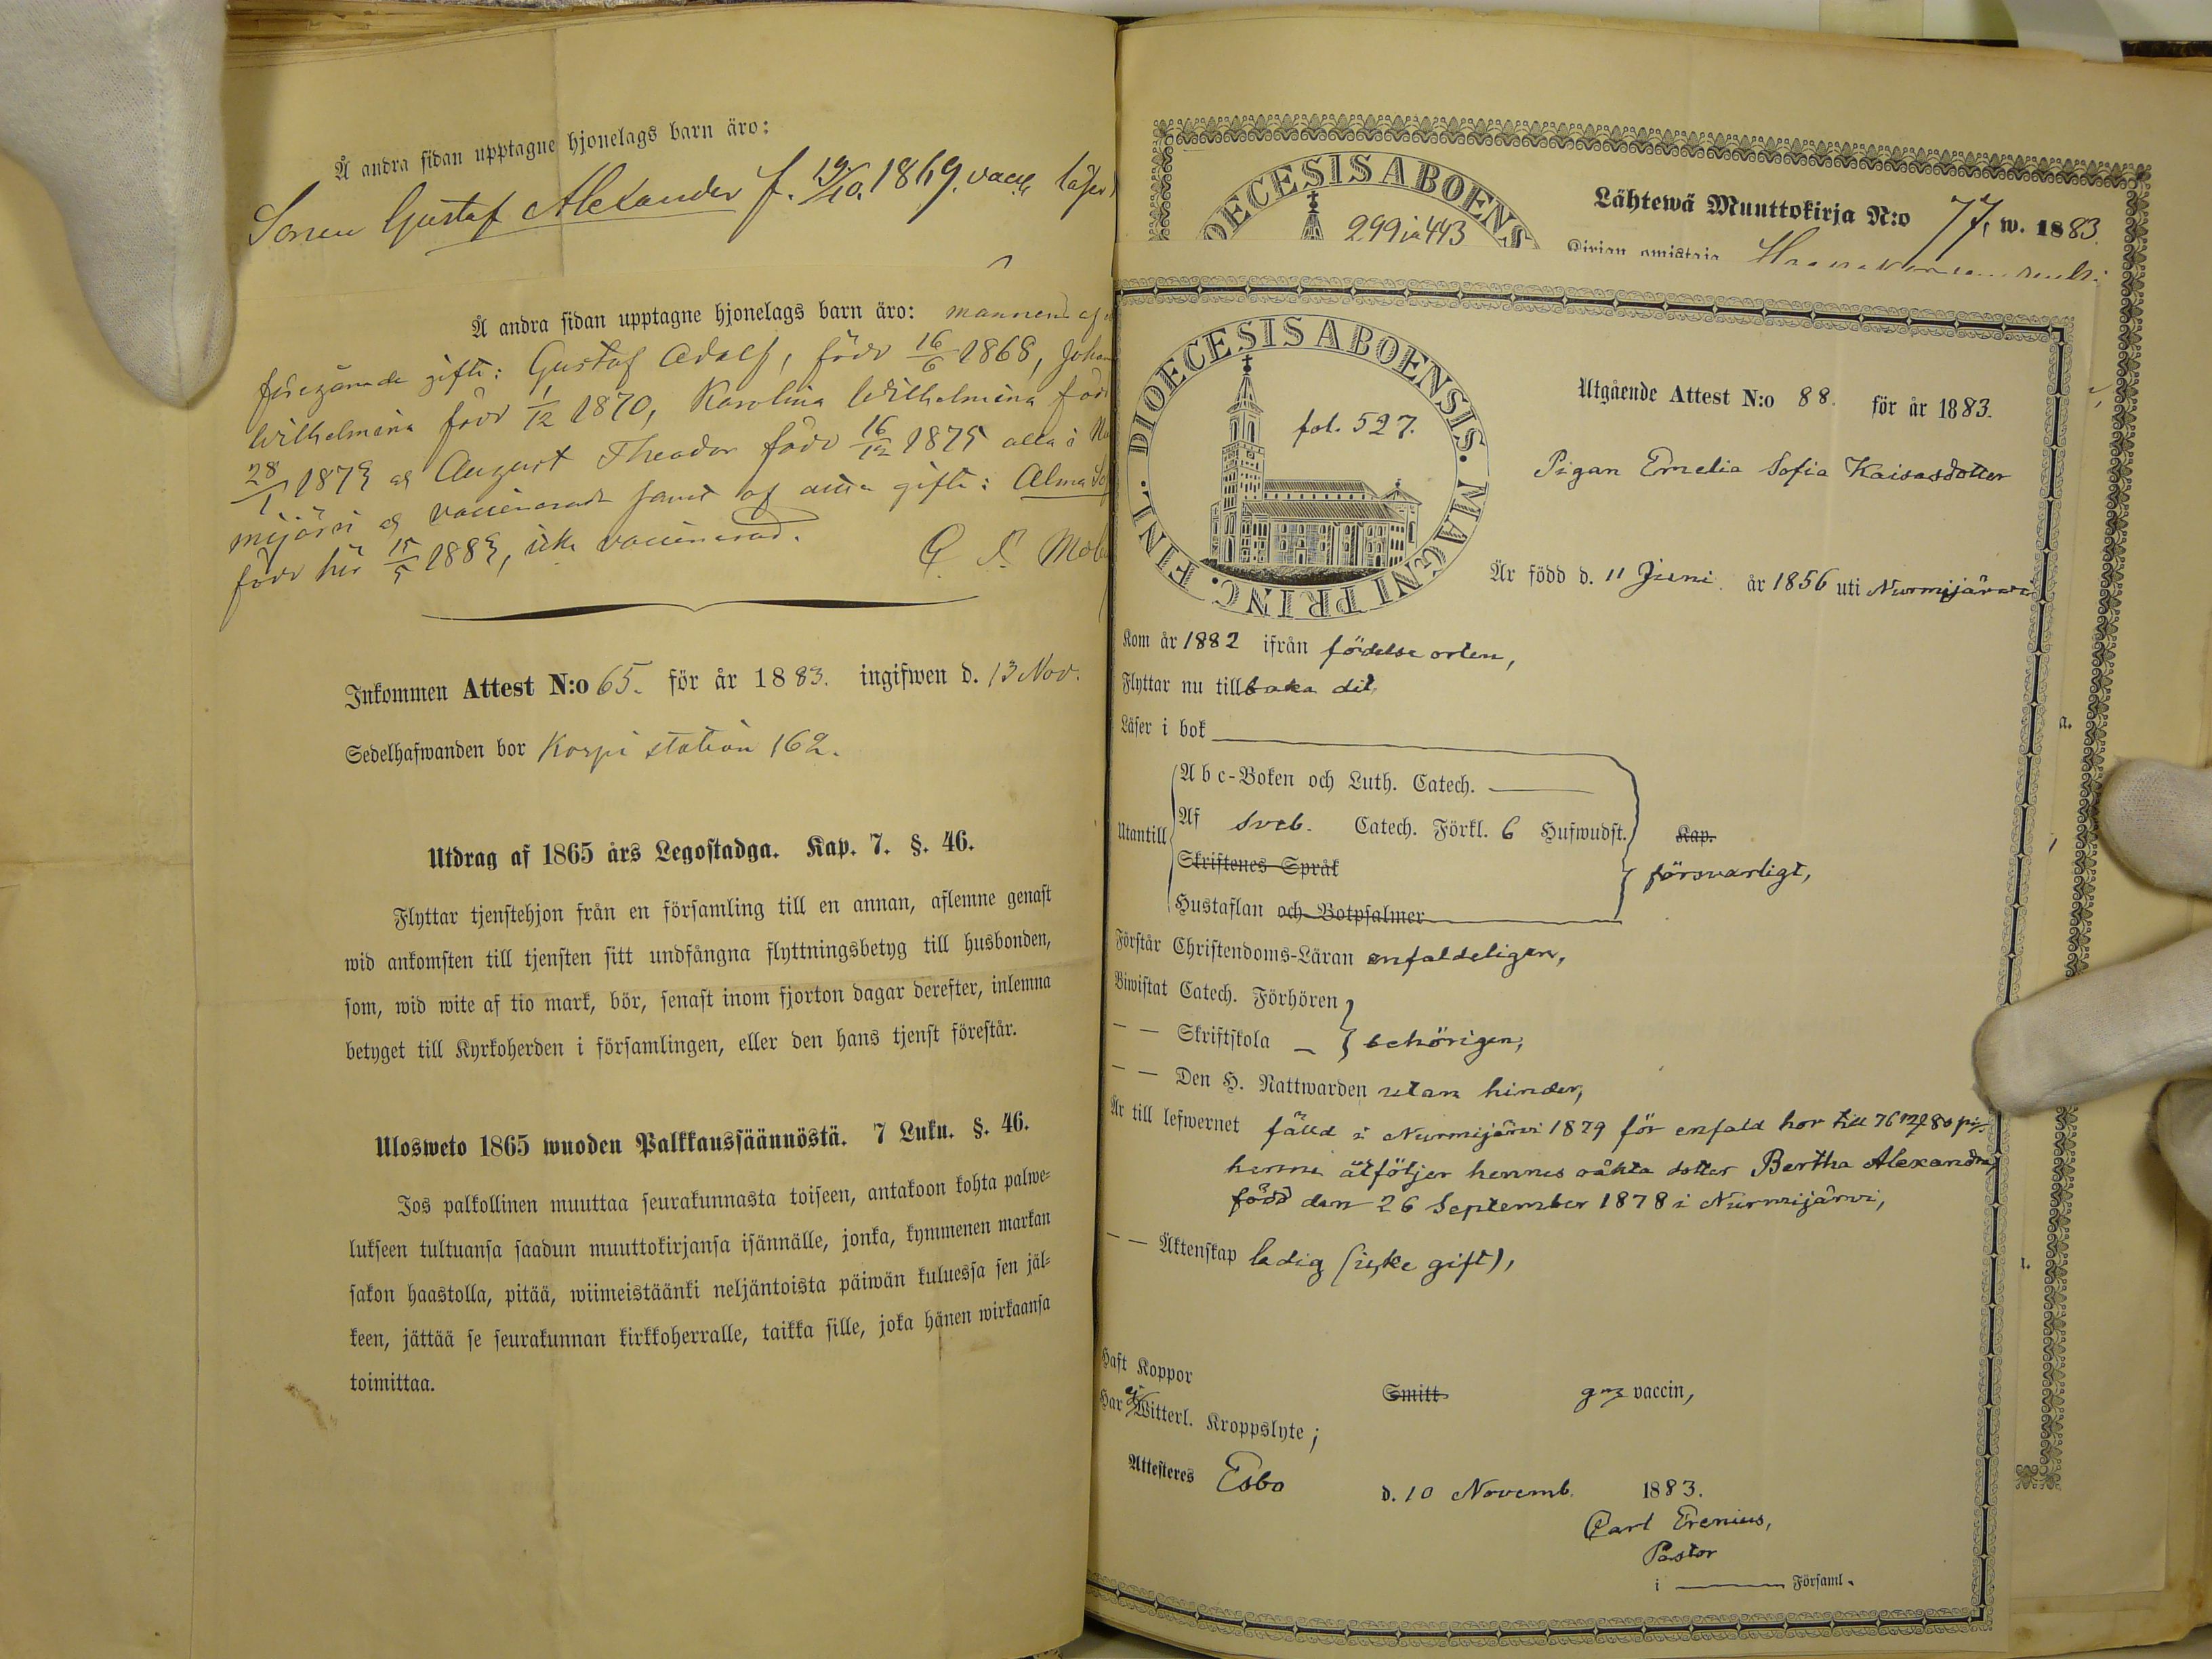 Å andra sidan upptagne hjonelags barn äro:
Sonen Gustaf Alexander f. 19/10 1869. vacc. läser
Å andra sidan upptagne hjonelags barn äro: mannens af
föregående gifte: Gustaf Adolf, född 16/6 1868, Johan
Wilhelmina född 1/12 1870, Karolina Wilhelmina född
28/1 1873 og August Theodor född 16/12 1875 alla i Nu
mijärvi og vaccinerade samt af detta gifte: Alma So
född här 15/5 1883, icke vaccinerad.
Inkommen Attest N:o 65. för år 1883. ingifwen d. 13 Nov.
Sedelhafwanden bor Korpi station 162.
Utdrag af 1865 års Legostadga. Kap. 7. §. 46.
Flyttar tjenstehjon från en församling till en annan, aflemne genast
wid ankomsten till tjensten sitt undfångna flyttningsbetyg till husbonden,
som, wid wite af tio mark, bör, senast inom fjorton dagar derefter, inlemna
betyget till Kyrkoherden i församlingen, eller den hans tjenst förestår.
Ulosweto 1865 wuoden Palkkaussäännöstä. 7 Luku. §. 46.
Jos palkollinen muuttaa seurakunnasta toiseen, antakoon kohta palwe-
lukseen tultuansa saadun muuttokirjansa isännälle, jonka, kymmenen markan
sakon haastolla, pitää, wiimeistäänki neljäntoista päiwän kuluessa sen jäl-
keen, jättää se seurakunnan kirkkoherralle, taikka sille, joka hänen wirkaansa
toimittaa.
OECESIS ABOENS
299 ja 443
Lähtewä Muuttokirja N:o 77, w. 1883.
Kirjan omistaja
DIOECESIS ABOENSIS. MAGNI PRINC. FINL.
fol. 527.
Utgående Attest N:o 88. för år 1883.
Pigan Emelia Sofia Kaisasdotter
Är född d. 11 Juni. år 1856 uti Nurmijärwi
Kom år 1882 ifrån födelse orten,
Flyttar nu tillbaka dit,
Läser i bok
Utantill
A b c-Boken och Luth. Catech.
Af sveb. Catech. Förkl. 6 Hufwudst. Kap.
Skriftenes Språk
försvarligt,
Hustaflan och Botpsalmer
Förstår Christendoms-Läran enfaldeligen,
Biwistat Catech. Förhören
— — Skriftskola — behörigen,
— — Den H. Nattwarden utan hinder,
Är till lefwernet fälld i Nurmijärvi 1879 för enfald hor till 76 mf 80 pi,
henne åtföljer hennes oäkta dotter Bertha Alexandra,
född den 26 September 1878 i Nurmijärvi,
— — Äktenskap ledig (icke gift),
Haft Koppor Smitt gnz vaccin,
Har ej Witterl. Kroppslyte;
Attesteres Esbo d. 10 Novemb. 1883.
Carl Erenius,
Pastor
i Församl.